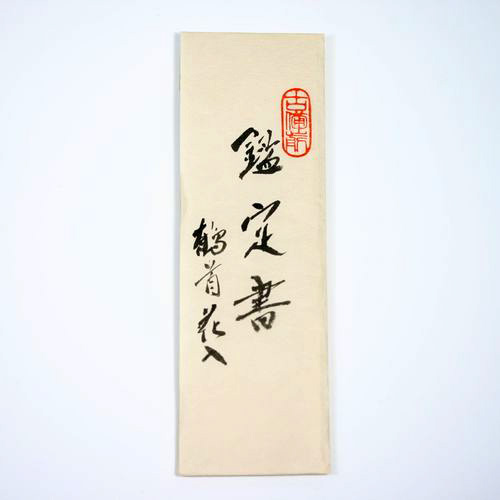 古備前
鑑定書
鶴首花入